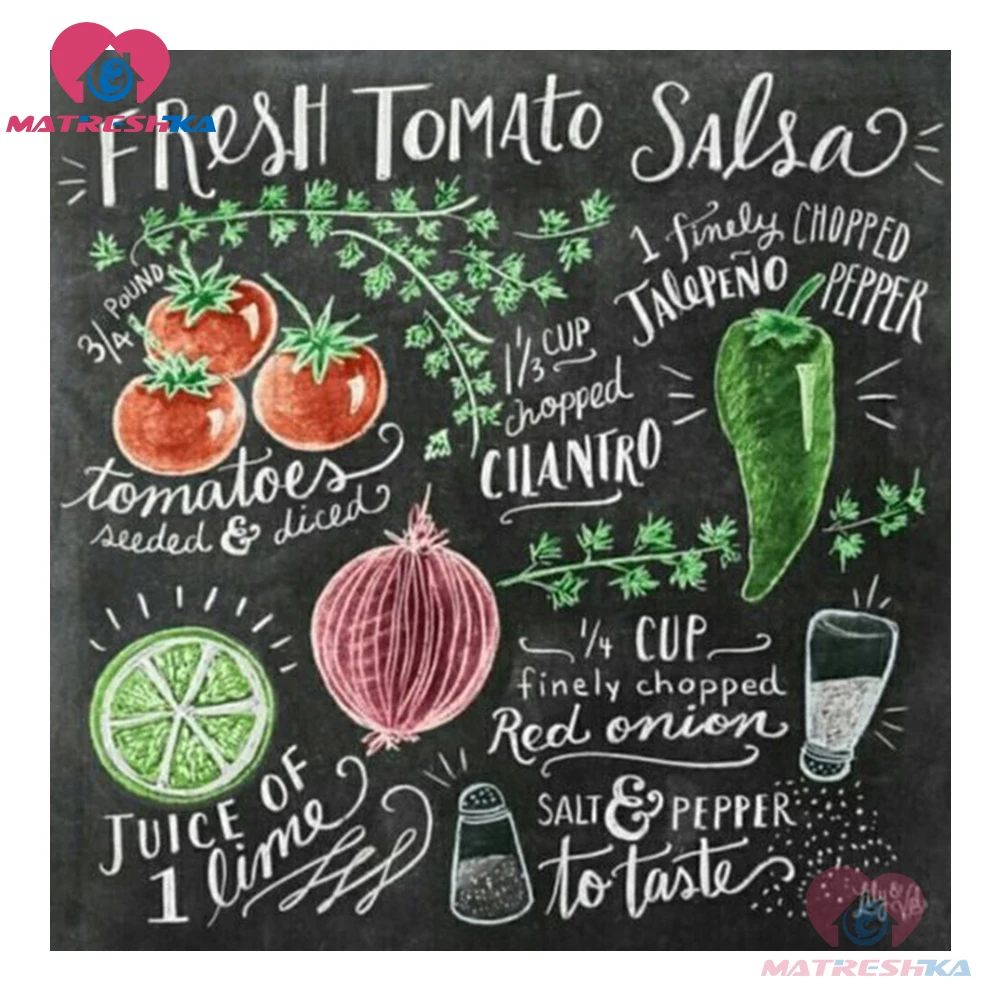 MATRESHKA
FRESH TOMATO SALSA
3/4 POUND
tomatoes
seeded & diced
1 1/3 CUP
chopped
CILANTRO
1 finely CHOPPED
JALEPEÑO PEPPER
1/4 CUP
finely chopped
Red onion
JUICE OF
1 lime
SALT & PEPPER
to taste
Lily & Val
MATRESHKA